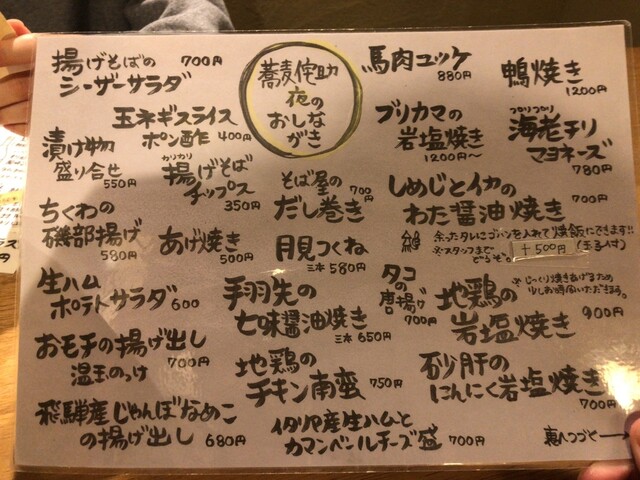 蕎麦侘助
夜の
おしな
がき
揚げそばの
シーザーサラダ
700円
玉ネギスライス
ポン酢 400円
漬け物
盛り合せ
550円
カリカリ
揚げそば
チップス
350円
ちくわの
磯部揚げ
580円
あげ焼き
500円
生ハム
ポテトサラダ 600
おモチの揚げ出し
700円
温玉のっけ
飛騨産じゃんぼなめこ
の揚げ出し 680円
馬肉ユッケ
880円
鴨焼き
1200円
ブリカマの
岩塩焼き
1200円〜
プリプリ
海老チリ
マヨネーズ
780円
そば屋の
だし巻き
700円
しめじとイカの
わた醤油焼き
700円
余ったタレにゴハンを入れて焼飯にできます!!
※スタッフまで
どうぞ。
+500円(玉子付)
月見つくね
三本 580円
手羽先の
七味醤油焼き
三本 650円
タコ
の
唐揚げ
700円
地鶏の
岩塩焼き
900円
※じっくり焼きあげるため
少しお時間いただきます。
地鶏の
チキン南蛮 750円
砂肝の
にんにく岩塩焼き
700円
イタリア産生ハムと
カマンベールチーズ盛 700円
裏へつづく→